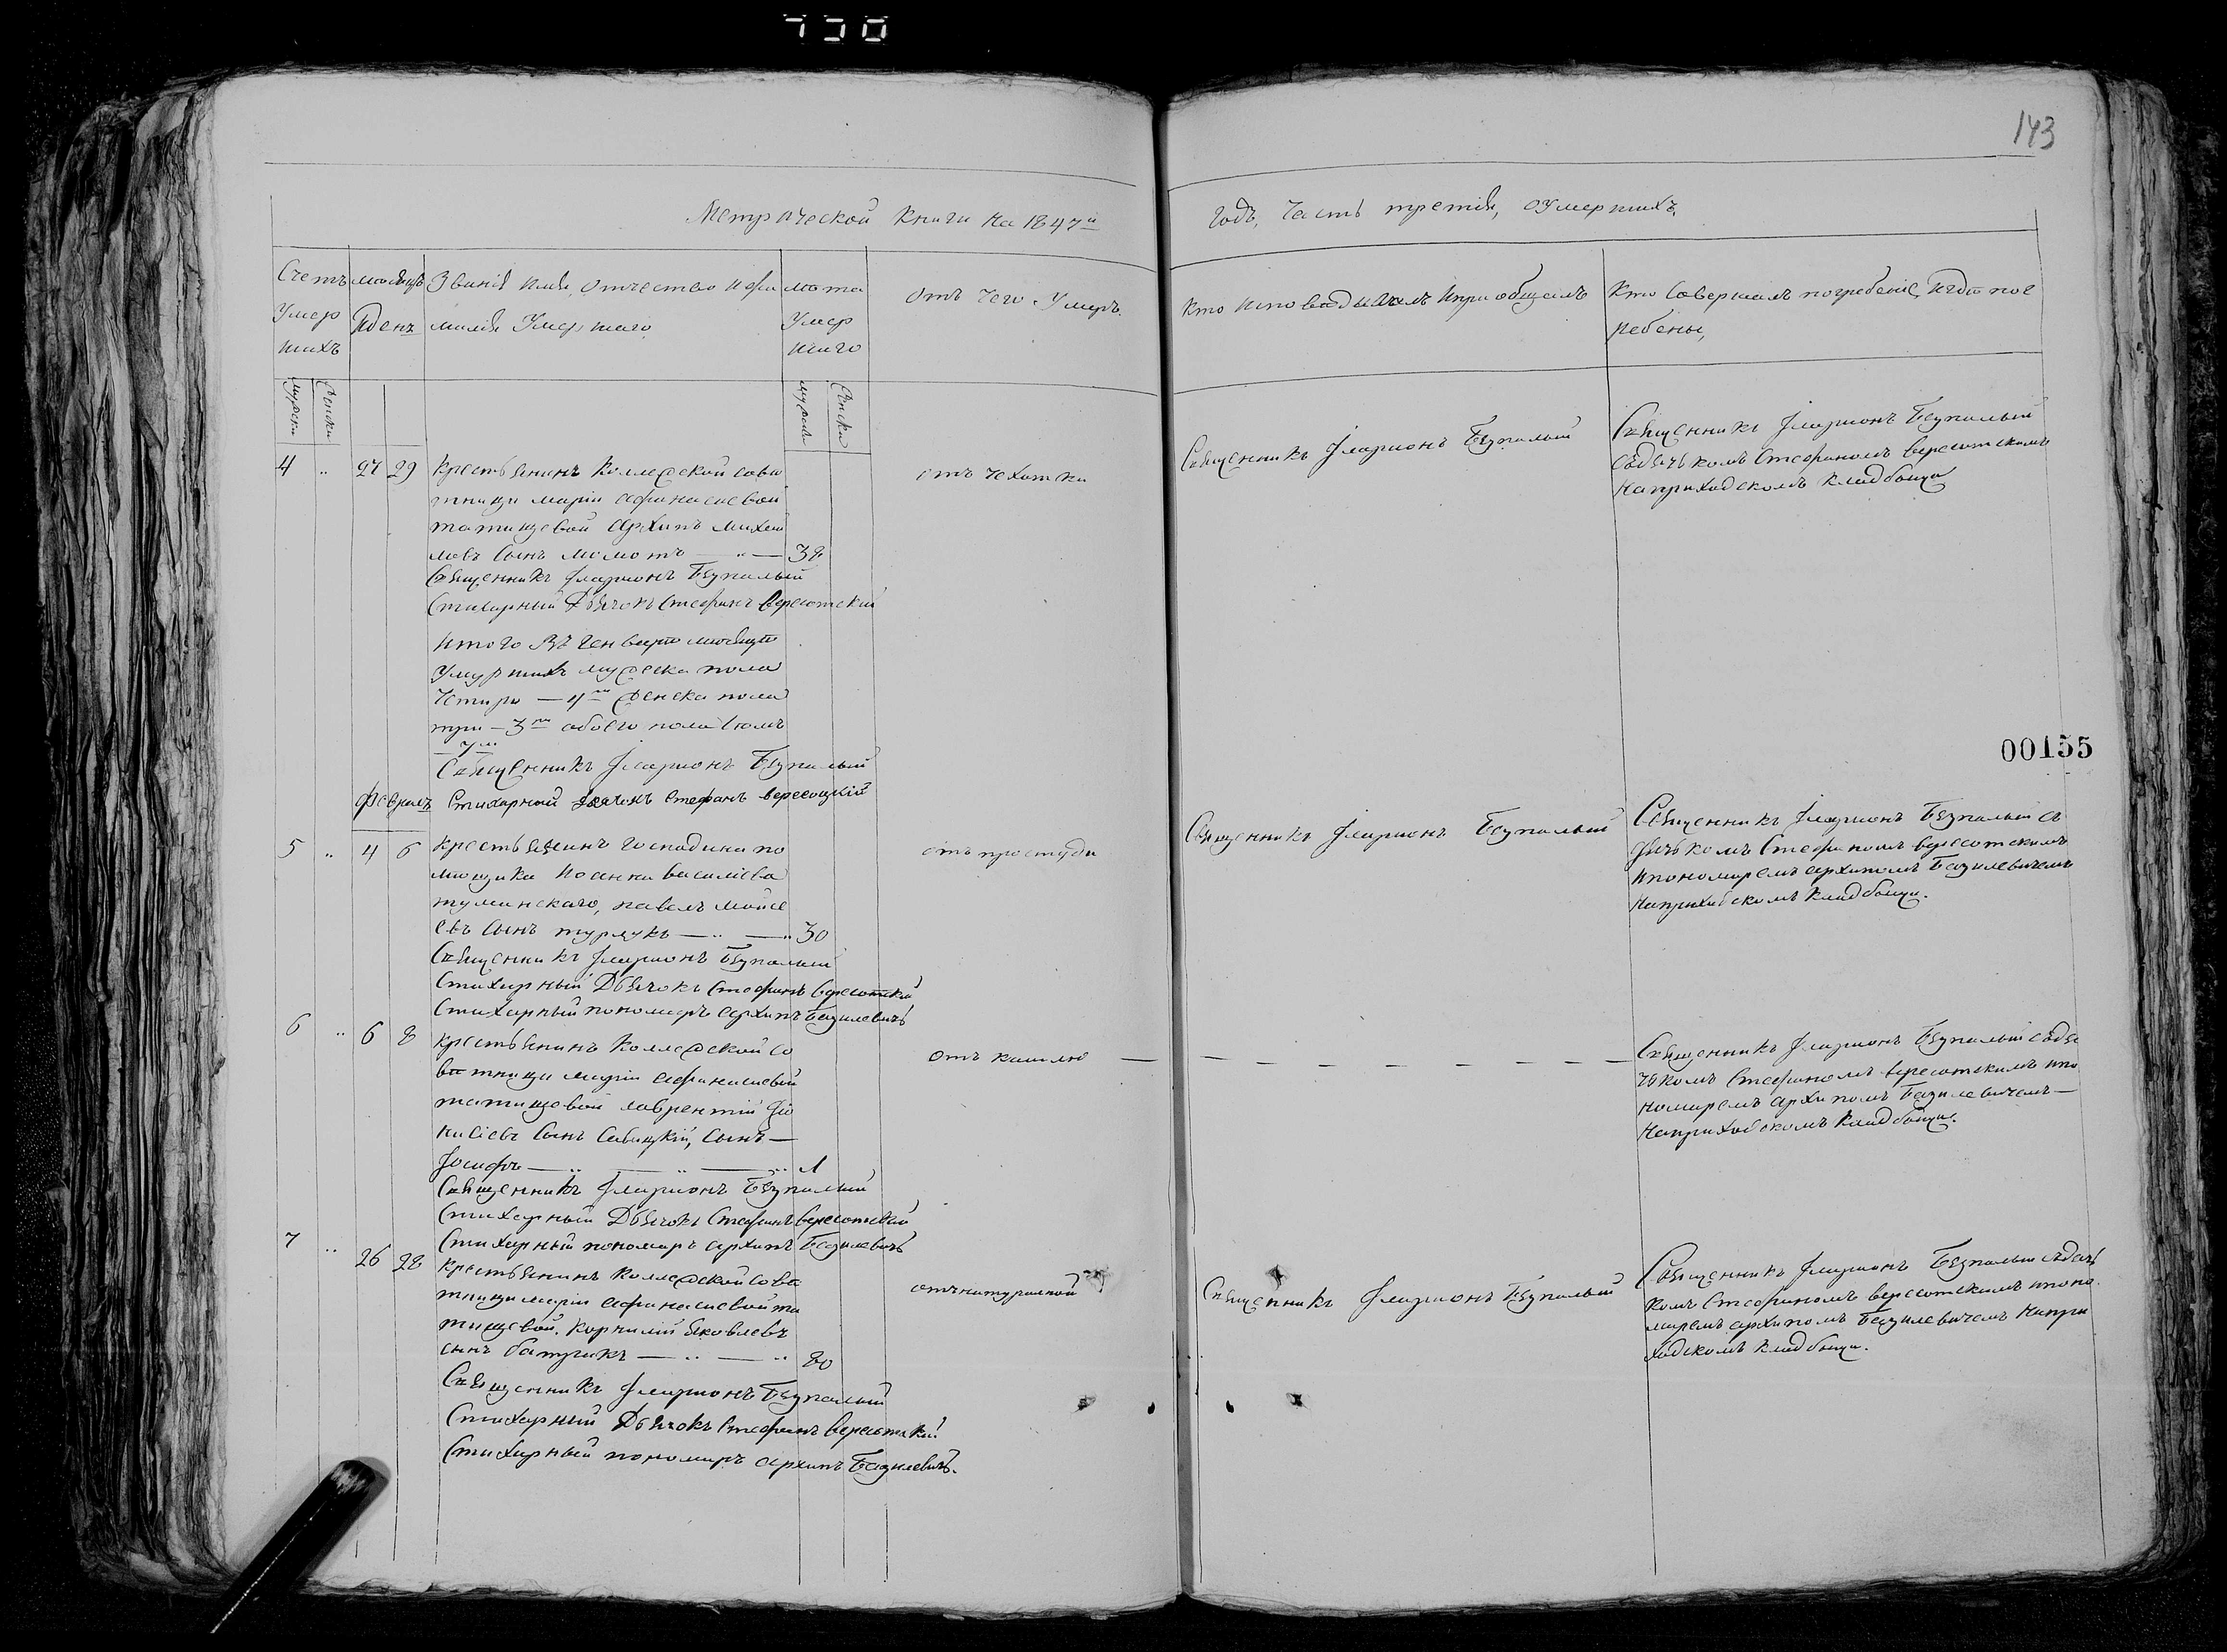 730
143
Метрической Книги на 1847й
Годъ, Часть третія, оУмершихъ.
Счетъ Умер шихъ
месяцъ Иденъ
Званія имя, отчество ифа
милія Умершаго
лета Умер шаго
Отъ Чего Умеръ.
Кто исповедывалъ иприобщалъ
Кто Совершалъ погребеніе, игде пог
ребены,
мужски
женски
мужеск
женски
4 .. 27 29
Крестьянинъ Коллежской сове
тници маріи афанасіевой
татищевой архипъ михай
ловъ сынъ момотъ 38
Священникъ Іларионъ Безпалый
Стихарный Дьячокъ Стефанъ вересотский
отъ чехотки
Священникъ Іларионъ Безпалый
Священникъ Іларионъ Безпалый
съдьячькомъ Стефаномъ вересотскимъ
Наприходскомъ кладбищи
Итого Въ Генваре месяце
Умершихъ мужеска пола
Четири — 4ри женска пола
три — 3ри обоего пола семъ
— 7м
Священникъ Іларионъ Безпалый
Стихарный дьячокъ Стефанъ вересоцкій
Февраль
00155
5 .. 4 6
крестьянинъ Господина по
мещика Иоанна василіева
туманскаго, павелъ мойсе
евъ сынъ турлукъ 30
Священникъ Іларионъ Безпалый
Стихарный Дьячокъ Стефанъ вересотский
Стихарный пономаръ архипъ Базилевичь
отъ простуди
Священникъ Іларионъ Безпалый
Священникъ Іларионъ Безпалый съ
дячькомъ Стефаномъ вересотскимъ
ипономаремъ архипомъ Базилевичемъ
Наприходскомъ кладбищи.
6 .. 6 8
Крестьянинъ Коллежской со
ветници маріи афанасіевой
татищевой лаврентій Діо
нисіевъ сынъ Савицкій, сынъ —
Іосифъ 1
Священникъ Іларионъ Безпалый
Стихарный Дьячокъ Стефанъ вересотский
Стихарный пономаръ архипъ Базилевичь
отъ кашлю
Священникъ Іларионъ Безпалый съдья
чькомъ Стефаномъ вересотскимъ ипо
номаремъ архипомъ Базилевичемъ —
Наприходскомъ кладбищи.
7 .. 26 28
Крестьянинъ Коллежской сове
тници маріи афанасіевой та
тищевой, корнилій Яковлевъ
сынъ батурикъ 80
Священникъ Іларионъ Безпалый
Стихарный Дьячокъ Стефанъ вересотский
Стихарный пономаръ архипъ Базилевичь.
отънатуралной
Священникъ Іларионъ Безпалый
Священникъ Іларионъ Безпалый съдячь
комъ Стефаномъ вересотскимъ ипоно
маремъ архипомъ Базилевичемъ Напри
ходскомъ кладбищи.